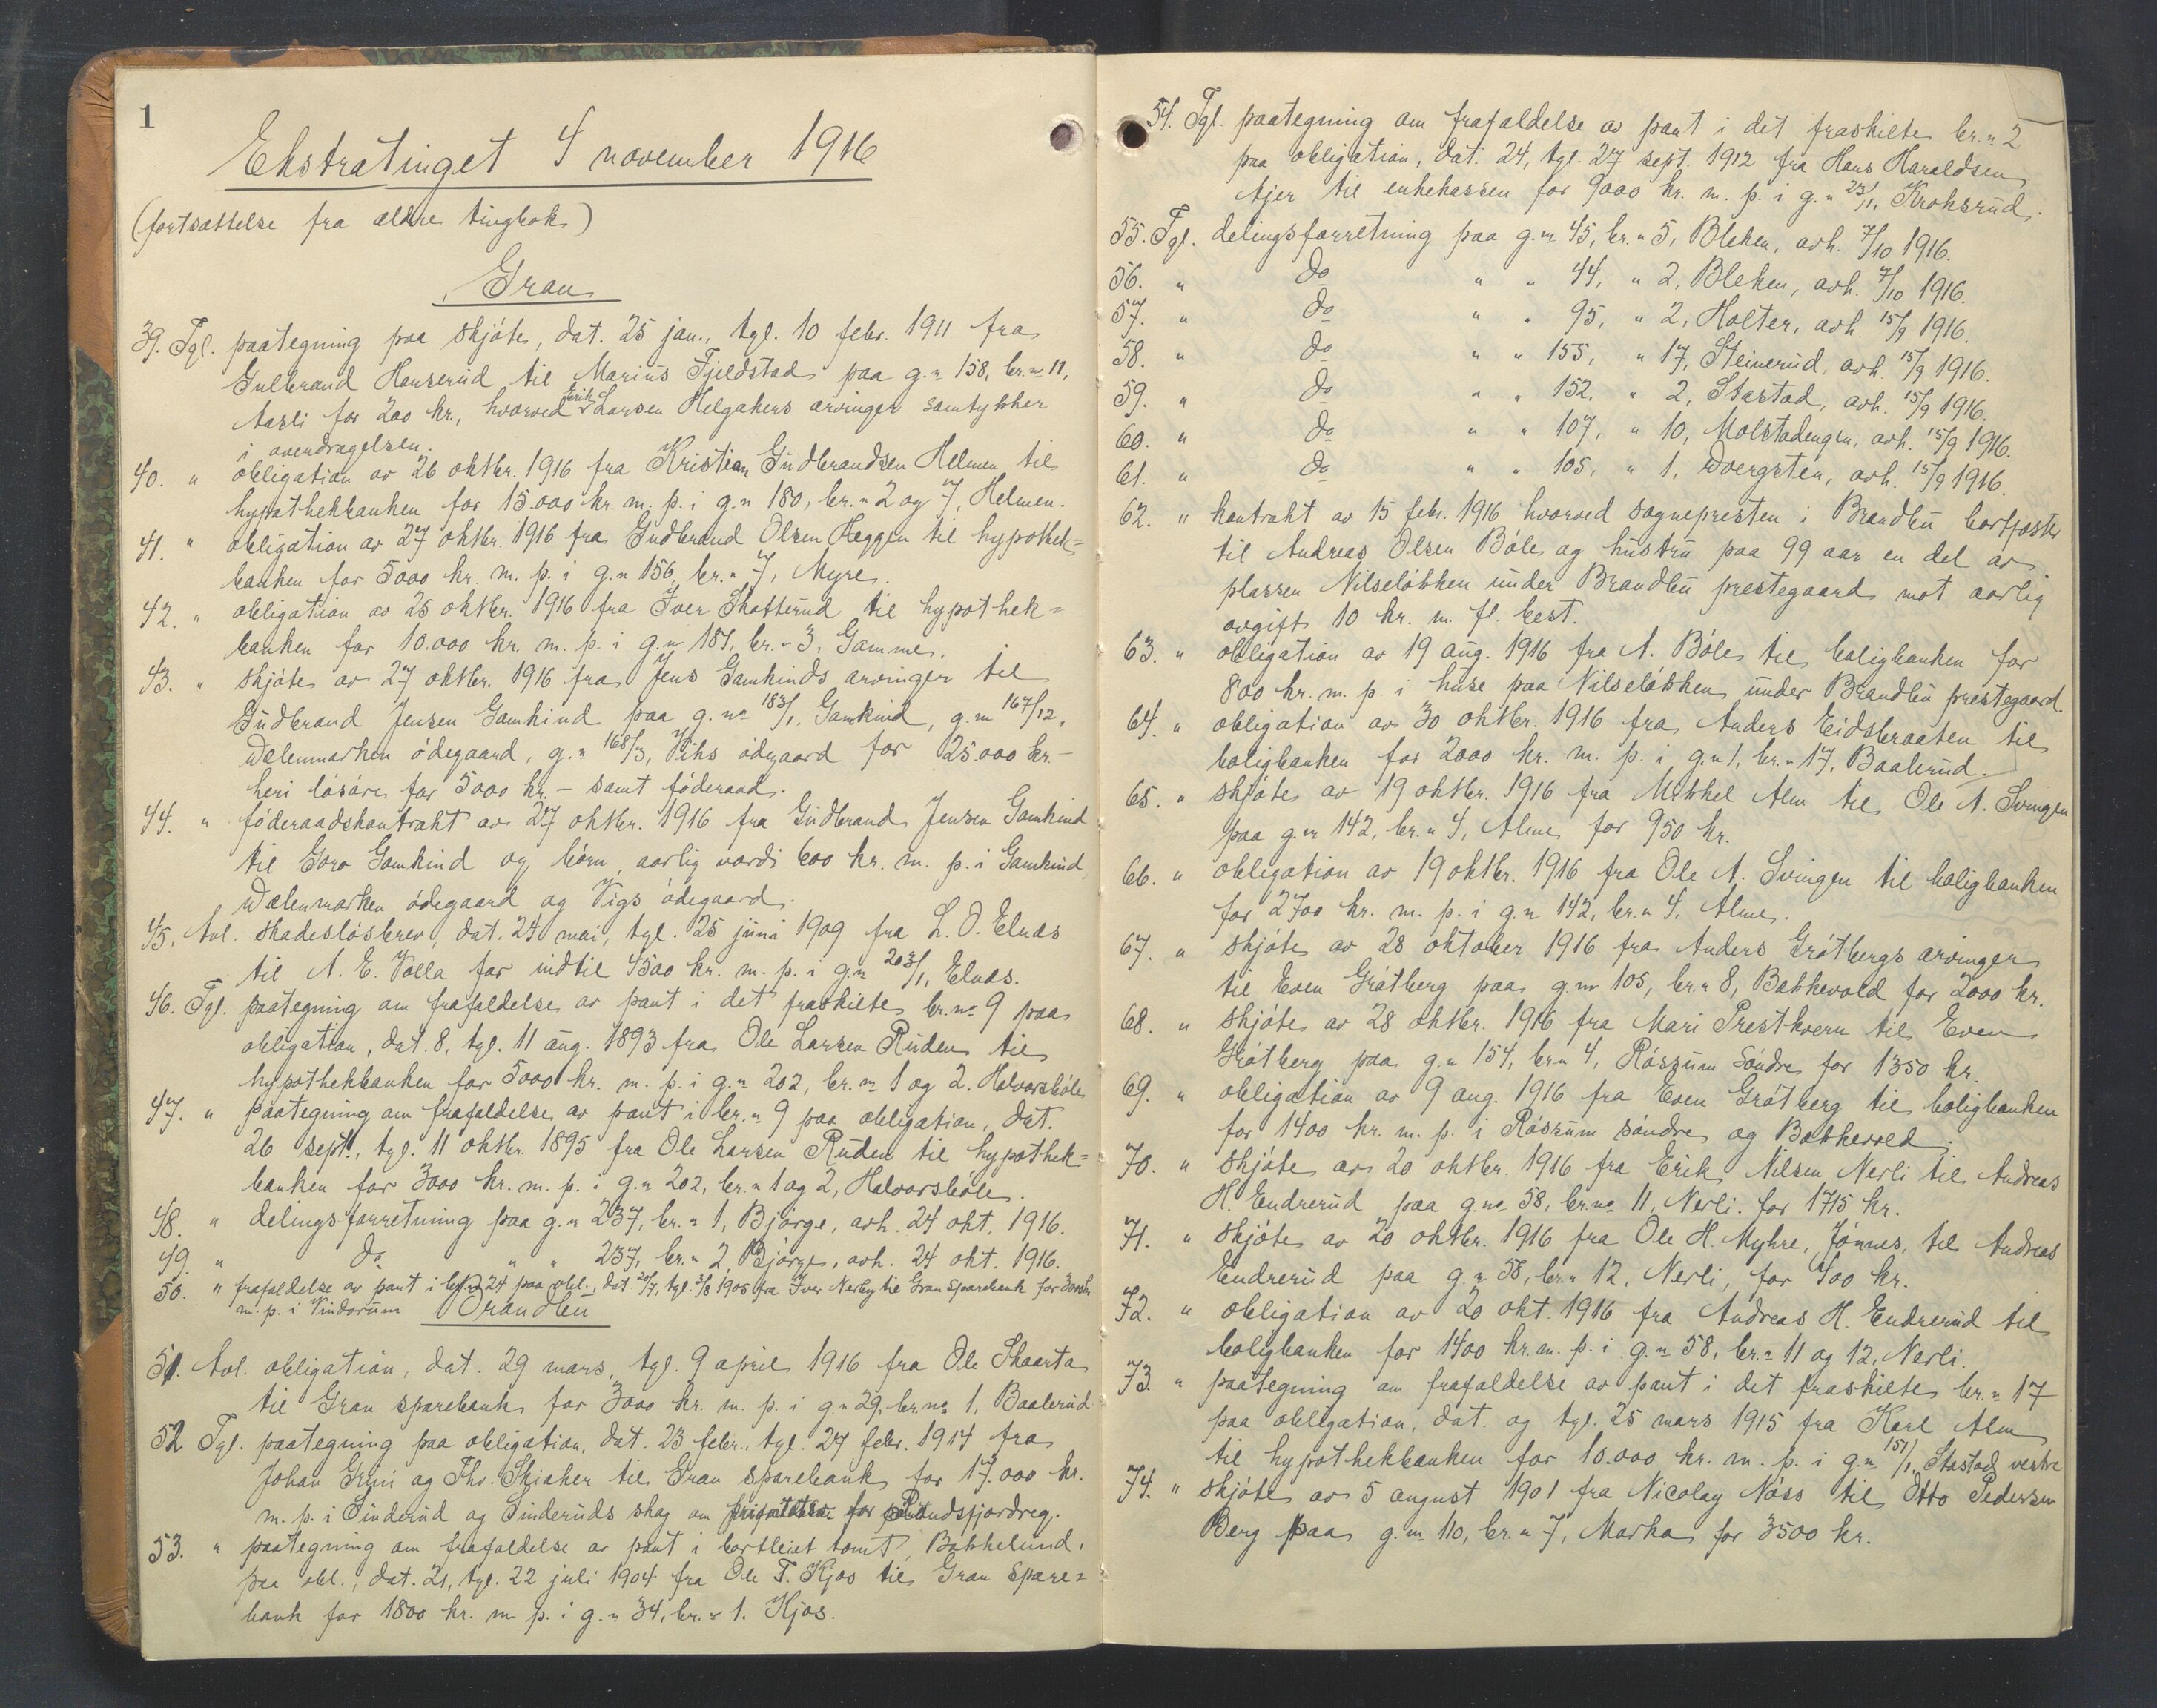 1
Ekstratinget 4 november 1916
(fortsættelse fra ældre tingbok)
Gran
39. Tgl. paategning paa skjøte, dat. 25 jan., tgl. 10 febr. 1911 fra
Gulbrand Hauserud til Marius Fjeldstad paa g.n 158, br.n 11,
Aasli for 200 kr., hvorved Erik Larsen Helgakers arvinger samtykker
i overdragelsen.
40. " obligation av 26 oktbr. 1916 fra Kristian Gudbrandsen Helmen til
hypothekbanken for 15.000 kr. m. p. i g.n 180, br.n 2 og 7, Helmen.
41. " obligation av 27 oktbr. 1916 fra Gudbrand Olsen Heggen til hypothek=
banken for 5000 kr. m. p. i g.n 156, br.n 7, Myre.
42. " obligation av 25 oktbr. 1916 fra Iver Skatterud til hypothek=
banken for 10.000 kr. m. p. i g.n 181, br.n 3, Gamme.
43. " skjøte av 27 oktbr. 1916 fra Jens Gamkinds arvinger til
Gudbrand Jensen Gamkind paa g.no 183/1, Gamkind, g.n 167/12,
Dælenmarken ødegaard, g.n 168/3, Viks ødegaard for 25.000 kr. –
heri løsøre for 5000 kr. – samt føderaad.
44. " føderaadskontrakt av 27 oktbr. 1916 fra Gudbrand Jensen Gamkind
til Goro Gamkind og børn, aarlig værdi 600 kr. m. p. i Gamkind,
Dælenmarken ødegaard og Vigs ødegaard.
45. Avl. skadesløsbrev, dat. 24 mai, tgl. 25 juni 1909 fra L. O. Elnæs
til A. E. Volla for indtil 4500 kr. m. p. i g.n 203/1, Elnæs.
46. Tgl. paategning om frafaldelse av pant i det fraskilte br.no 9 paa
obligation, dat. 8, tgl. 11 aug. 1893 fra Ole Larsen Ruden til
hypothekbanken for 5000 kr. m. p. i g.n 202, br.n 1 og 2, Halvorsbøle
47. " paategning om frafaldelse av pant i br.n 9 paa obligation, dat.
26 sept., tgl. 11 oktbr. 1895 fra Ole Larsen Ruden til hypothek=
banken for 3000 kr. m. p. i g.n 202, br.n 1 og 2, Halvorsbøle.
48. " delingsforretning paa g.n 237, br.n 1, Bjørge, avh. 24 okt. 1916.
49. " do " " 237, br.n 2, Bjørge, avh. 24 okt. 1916.
50. " frafaldelse av pant i 24 paa obl., dat. tgl. 1905 fra Iver Nerby til Gran Sparebank for
m. p. i Vindorum
Brandbu
51. Avl. obligation, dat. 29 mars, tgl. 9 april 1916 fra Ole Skaarta
til Gran sparebank for 3000 kr. m. p. i g.n 29, br.no 1, Baalerud
52 Tgl. paategning paa obligation, dat. 23 febr., tgl. 27 febr. 1914 fra
Johan Grini og Thv. Skiaker til Gran sparebank for 17.000 kr.
m. p. i Tinderud og Tinderuds skog om for Randsfjordreg.
53. " paategning om frafaldelse av pant i bortleiet tomt, Bakkelund,
paa obl., dat. 21, tgl. 22 juli 1904 fra Ole T. Kjos til Gran Spare=
bank for 1800 kr. m. p. i g.n 34, br.n 1. Kjos.
54. Tgl. paategning om frafaldelse av pant i det fraskilte br.n 2
paa obligation, dat. 24, tgl. 27 sept. 1912 fra Hans Haraldsen
Ajer til enkekassen for 9000 kr. m. p. i g.n 23/1, Kroksrud.
55. Tgl. delingsforretning paa g.n 45, br.n 5, Bleken, avh. 7/10 1916.
56. " do " " 44, " 2, Bleken, avh. 7/10 1916.
57. " do " " 95, " 2, Holter, avh. 15/9 1916.
58. " do " " 155, " 17, Steinerud, avh. 15/9 1916.
59. " do " " 152, " 2, Stastad, avh. 15/9 1916.
60. " do " " 107, " 10, Molstadengen, avh. 15/9 1916.
61. " do " " 105, " 1, Dvergsten, avh. 15/9 1916.
62. " kontrakt av 15 febr. 1916 hvorved sognepresten i Brandbu bortfæster
til Andreas Olsen Bøle og hustru paa 99 aar en del av
plassen Nilseløkken under Brandbu prestegaard mot aarlig
avgift 10 kr. m. fl. best.
63. " obligation av 19 aug. 1916 fra A. Bøle til boligbanken for
800 kr. m. p. i huse paa Nilseløkken under Brandbu prestegaard.
64. " obligation av 30 oktbr. 1916 fra Anders Eidsbraaten til
boligbanken for 2000 kr. m. p. i g.n 1, br.n 17, Baalerud.
65. " skjøte av 19 oktbr. 1916 fra Mikkel Alm til Ole A. Svingen
paa g.n 142, br.n 4, Alme for 950 kr.
66. " obligation av 19 oktbr. 1916 fra Ole A. Svingen til boligbanken
for 2700 kr. m. p. i g.n 142, br.n 4, Alme.
67. " skjøte av 28 oktober 1916 fra Anders Grøtbergs arvinger
til Even Grøtberg paa g.nr 105, br.n 8, Bakkevold for 2000 kr.
68. " skjøte av 28 oktbr. 1916 fra Mari Prestkvern til Even
Grøtberg paa g.n 154, br.n 4, Røssum søndre for 1350 kr.
69. " obligation av 9 aug. 1916 fra Even Grøtberg til boligbanken
for 1400 kr. m. p. i Røssum søndre og Bakkevold.
70. " skjøte av 20 oktbr. 1916 fra Erik Nilsen Nerli til Andreas
H. Endrerud paa g.no 58, br.no 11, Nerli. for 1715 kr.
71. " skjøte av 20 oktbr. 1916 fra Ole H. Myhre, Jønnes, til Andreas
Endrerud paa g.n 58, br.n 12, Nerli, for 400 kr.
72. " obligation av 20 okt. 1916 fra Andreas H. Endrerud til
boligbanken for 1400 kr. m. p. i g.n 58, br.n 11 og 12, Nerli.
73. " paategning om frafaldelse av pant i det fraskilte br.n 17
paa obligation, dat. og tgl. 25 mars 1915 fra Karl Alm
til hypothekbanken for 10.000 kr. m. p. i g.n 151/1, Stastad vestre
74. " skjøte av 5 august 1901 fra Nicolay Næss til Otto Pedersen
Berg paa g.n 110, br.n 7, Marka for 3500 kr.